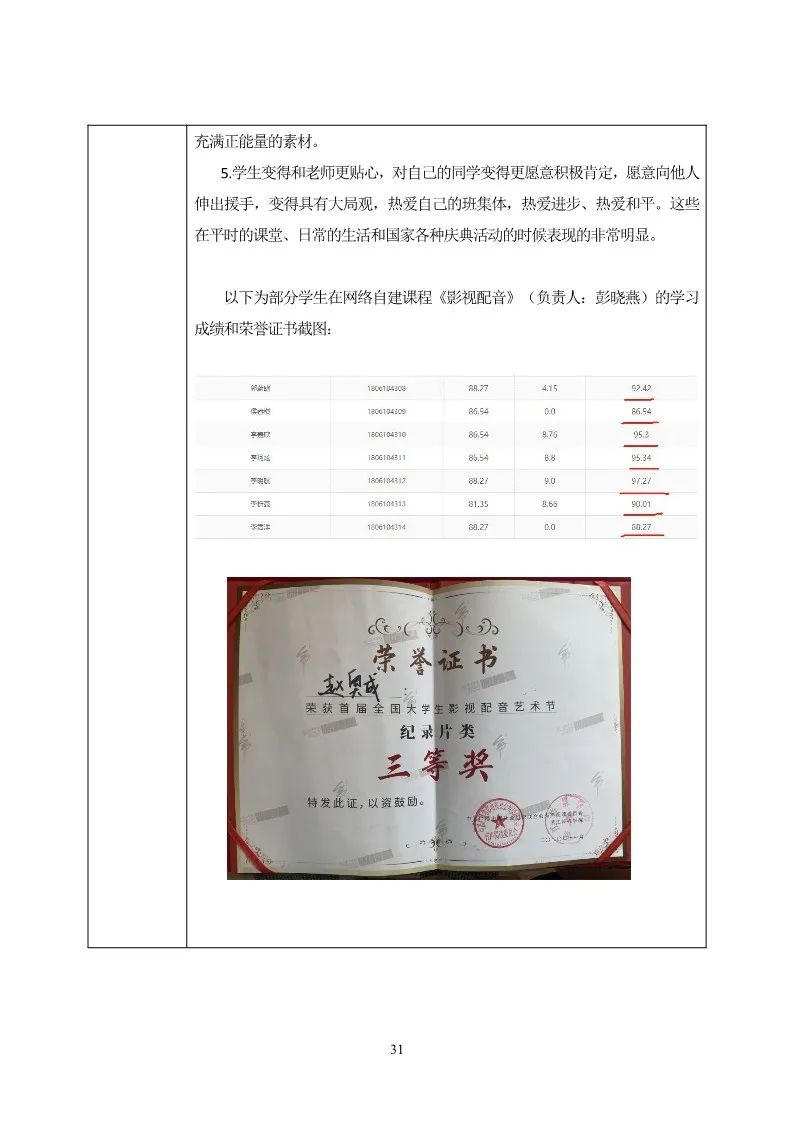 充满正能量的素材。
5.学生变得和老师更贴心，对自己的同学变得更愿意积极肯定，愿意向他人
伸出援手，变得具有大局观，热爱自己的班集体，热爱进步、热爱和平。这些
在平时的课堂、日常的生活和国家各种庆典活动的时候表现的非常明显。
以下为部分学生在网络自建课程《影视配音》（负责人：彭晓燕）的学习
成绩和荣誉证书截图：
1806104308 88.27 4.15 92.42
1806104309 86.54 0.0 86.54
1806104310 86.54 8.76 95.3
1806104311 86.54 8.8 95.34
1806104312 88.27 9.0 97.27
1806104313 81.35 8.66 90.01
1806104314 88.27 0.0 88.27
荣誉证书
荣获首届全国大学生影视配音艺术节
纪录片类
三等奖
特发此证，以资鼓励。
31